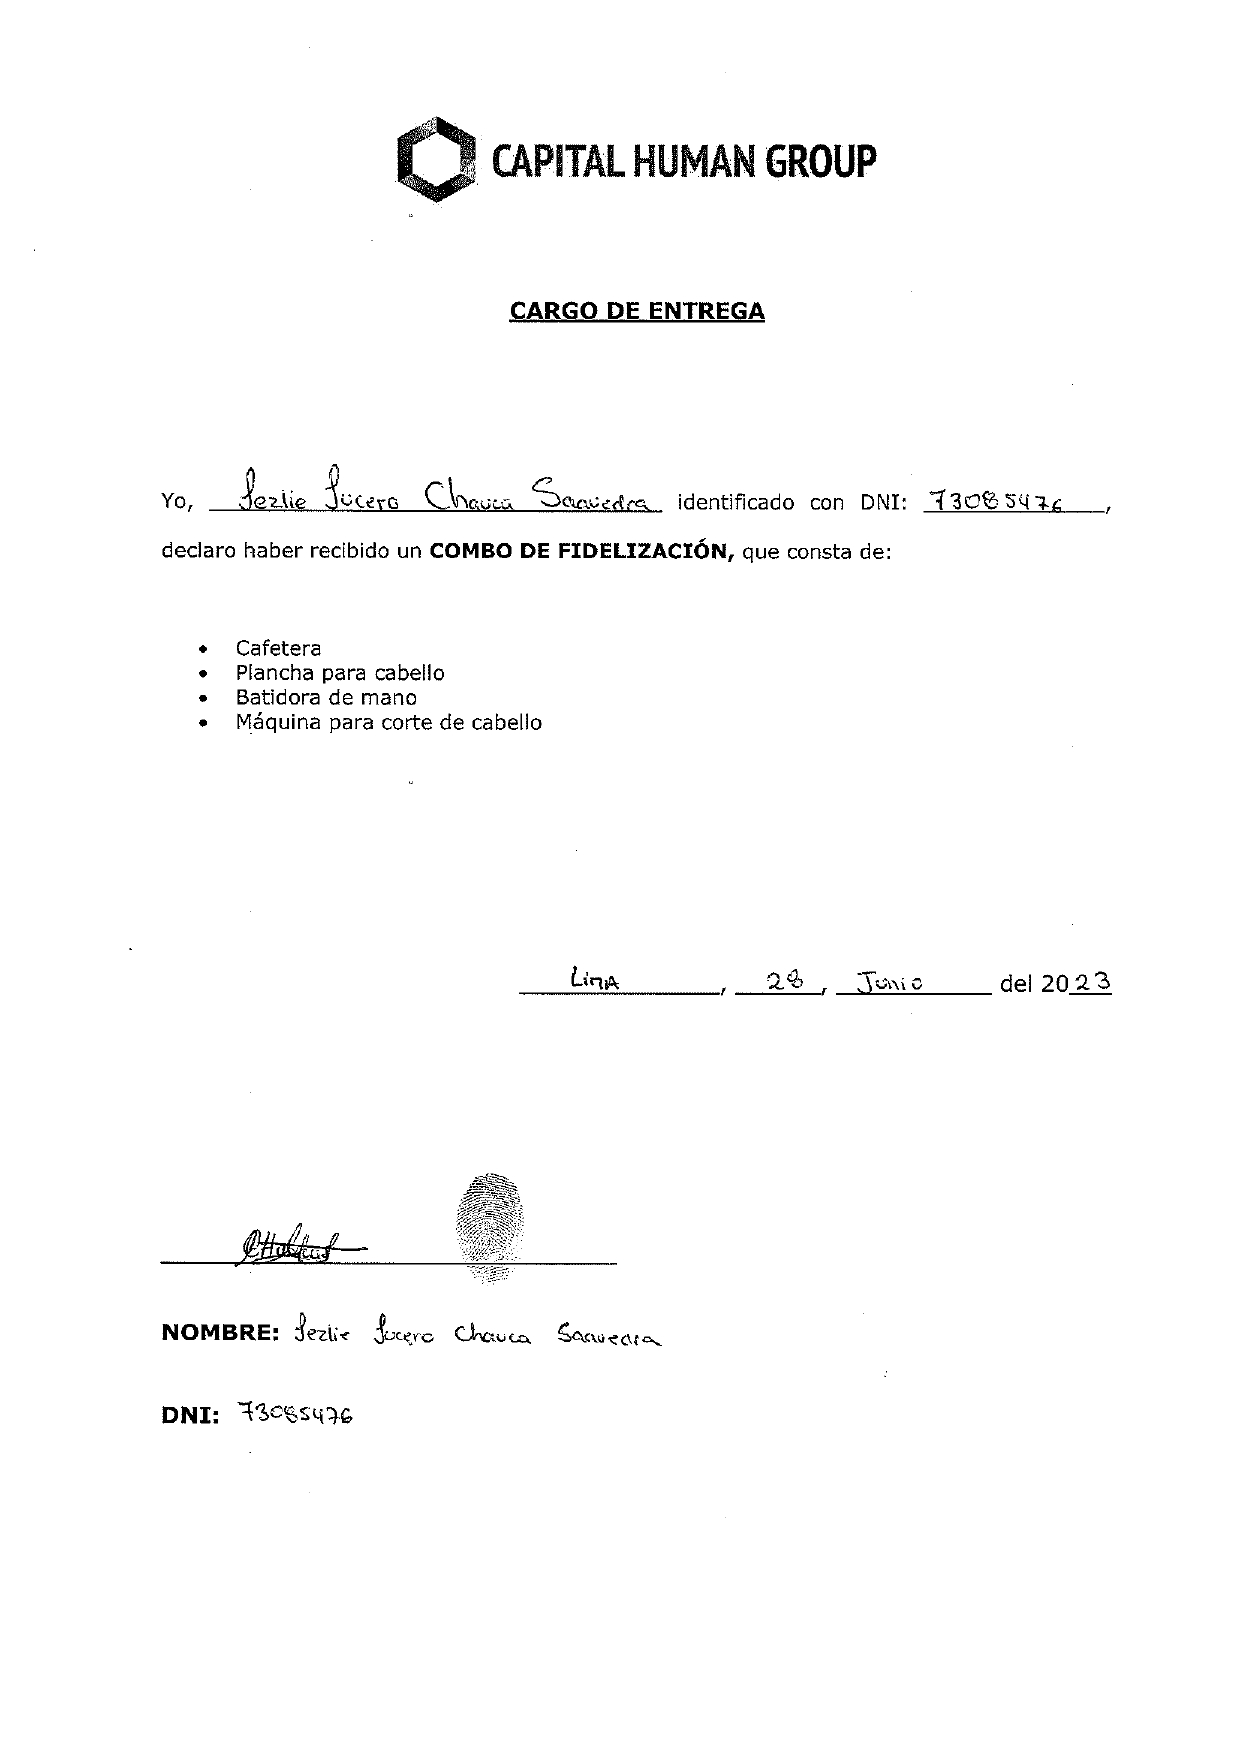 CAPITAL HUMAN GROUP
CARGO DE ENTREGA
Yo, Lezlie Lucero Chauca Saavedra identificado con DNI: 73085476,
declaro haber recibido un COMBO DE FIDELIZACIÓN, que consta de:
• Cafetera
• Plancha para cabello
• Batidora de mano
• Máquina para corte de cabello
Lima, 28, Junio del 2023
NOMBRE: Lezlie Lucero Chauca Saavedra
DNI: 73085476